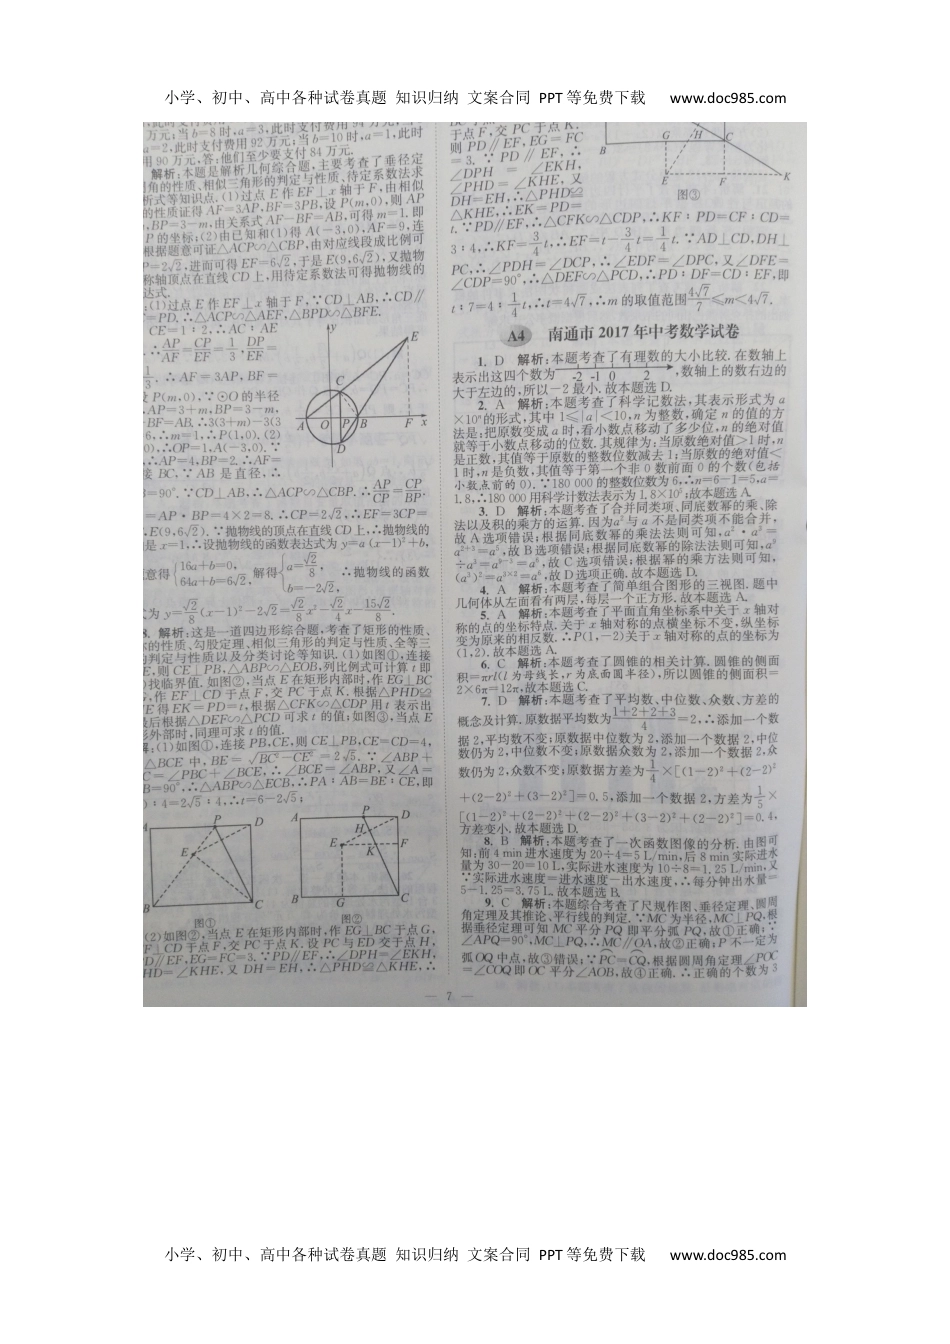 小学、初中、高中各种试卷真题 知识归纳 文案合同 PPT等免费下载 www.doc985.com
万元;当b=8时,a=3,此时支付费用
a=2,此时支付费用92万元;当b=10时,a=1,此时
用90万元,答:他们至少要支付84万元.
解析:本题是解析几何综合题,主要考查了垂径定
角的性质、相似三角形的判定与性质、待定系数法求
析式等知识点.(1)过点E作EF⊥x轴于F,由相似
的性质证得AF=3AP,BF=3PB,设P(m,0),则AP
,BP=3-m,由关系式AF-BF=AB,可得m=1.即
P的坐标;(2)由已知和(1)得A(-3,0),AF=9,连
根据题意可证△ACP∽△CBP,由对应线段成比例可
P=2√2,进而可得EF=6√2,于是E(9,6√2),又抛物
称轴顶点在直线CD上,用待定系数法可得抛物线的
达式.
:(1)过点E作EF⊥x轴于F,∵CD⊥AB,∴CD∥
F=PD.∴△ACP∽△AEF,△BPD∽△BFE.
CE=1:2,∴AC:AE
∴AP/AF=CP/EF=1/3,DP/EF=
1/3.∴AF=3AP,BF=
设P(m,0),∵⊙O的半径
,AP=3+m,BP=3-m,
-BF=AB.∴3(3+m)-3(3
6,∴m=1,∴P(1,0).(2)
0),∴OP=1,A(-3,0).∵
,∴AP=4,BP=2.∴AF=
接BC,∵AB是直径,∴
y
E
C
A
O
P
B
F
x
D
B=90°.∵CD⊥AB,∴△ACP∽△CBP.∴AP/CP=CP/BP.
=AP·BP=4×2=8.∴CP=2√2,∴EF=3CP=
∴E(9,6√2).∵抛物线的顶点在直线CD上,∴抛物线的
是x=1,∴设抛物线的函数表达式为y=a(x-1)²+b,
意得{16a+b=0, 64a+b=6√2, 解得{a=√2/8, b=-2√2, ∴抛物线的函数
为y=√2/8(x-1)²-2√2=√2/8x²-√2/4x-15√2/8.
8. 解析:这是一道四边形综合题,考查了矩形的性质、
的性质、勾股定理、相似三角形的判定与性质、全等三
的判定与性质以及分类讨论等知识.(1)如图①,连接
E,则CE⊥PB,△ABP∽△EOB,列比例式可计算t即
)找临界值.如图②,当点E在矩形内部时,作EG⊥BC
,作EF⊥CD于点F,交PC于点K.根据△PHD≌
E得EK=PD=t,根据△CFK∽△CDP用t表示出
最后根据△DEF∽△PCD可求t的值;如图③,当点E
形外部时,同理可求t的值.
解:(1)如图①,连接PB,CE,则CE⊥PB,CE=CD=4,
△BCE中,BE=√BC²-CE²=2√5.∵∠ABP+
C=∠PBC+∠BCE,∴∠BCE=∠ABP,又∠A=
B=90°.∴△ABP∽△ECB,∴PA:AB=BE:CE,即
):4=2√5:4,∴t=6-2√5;
A
P
D
E
B
C
图①
A
P
D
H
E
K
F
B
G
C
图②
(2)如图②,当点E在矩形内部时,作EG⊥BC于点G,
F⊥CD于点F,交PC于点K.设PC与ED交于点H,
D∥EF,EG=FC=3.∵PD∥EF,∴∠DPH=∠EKH,
HD=∠KHE,又DH=EH,∴△PHD≌△KHE,∴
于点F,交PC于点K.
则PD∥EF,EG=FC
=3.∵PD∥EF,∴
∠DPH=∠EKH,
∠PHD=∠KHE,又
DH=EH,∴△PHD≌
△KHE,∴EK=PD=
B
G
H
C
E
F
K
图③
t.∵PD∥EF,∴△CFK∽△CDP,∴KF:PD=CF:CD=
3:4,∴KF=3/4t,∴EF=t-3/4t=1/4t.∵AD⊥CD,DH⊥
PC,∴∠PDH=∠DCP,∴∠EDF=∠DPC,又∠DFE=
∠CDP=90°,∴△DEF∽△PCD,∴PD:DF=CD:EF,即
t:7=4:1/4t,∴t=4√7,∴m的取值范围4√7/7≤m<4√7.
A4 南通市2017年中考数学试卷
1. D 解析:本题考查了有理数的大小比较.在数轴上
表示出这四个数为 -2 -1 0 2 ,数轴上的数右边的
大于左边的,所以-2最小.故本题选D.
2. A 解析:本题考查了科学记数法,其表示形式为a
×10ⁿ的形式,其中1≤|a|<10,n为整数,确定n的值的方
法是:把原数变成a时,看小数点移动了多少位,n的绝对值
就等于小数点移动的位数.其规律为:当原数绝对值>1时,n
是正数,其值等于原数的整数位数减去1;当原数的绝对值<
1时,n是负数,其值等于第一个非0数前面0的个数(包括
小数点前的0).∵180 000的整数位数为6,∴n=6-1=5,a=
1.8,∴180 000用科学计数法表示为1.8×10⁵;故本题选A.
3. D 解析:本题考查了合并同类项、同底数幂的乘、除
法以及积的乘方的运算.因为a²与a不是同类项不能合并,
故A选项错误;根据同底数幂的乘法法则可知,a²·a³=
a²⁺³=a⁵,故B选项错误;根据同底数幂的除法法则可知,a⁹
÷a³=a⁹⁻³=a⁶,故C选项错误;根据幂的乘方法则可知,
(a³)²=a³ˣ²=a⁶,故D选项正确.故本题选D.
4. A 解析:本题考查了简单组合图形的三视图.题中
几何体从左面看有两层,每层一个正方形.故本题选A.
5. A 解析:本题考查了平面直角坐标系中关于x轴对
称的点的坐标特点.关于x轴对称的点横坐标不变,纵坐标
变为原来的相反数.∴P(1,-2)关于x轴对称的点的坐标为
(1,2).故本题选A.
6. C 解析:本题考查了圆锥的相关计算.圆锥的侧面
积=πrl(l为母线长,r为底面圆半径),所以圆锥的侧面积=
2×6π=12π,故本题选C.
7. D 解析:本题考查了平均数、中位数、众数、方差的
概念及计算.原数据平均数为1+2+2+3/4=2,∴添加一个数
据2,平均数不变;原数据中位数为2,添加一个数据2,中位
数仍为2,中位数不变;原数据众数为2,添加一个数据2,众
数仍为2,众数不变;原数据方差为1/4×[(1-2)²+(2-2)²
+(2-2)²+(3-2)²]=0.5,添加一个数据2,方差为1/5×
[(1-2)²+(2-2)²+(2-2)²+(3-2)²+(2-2)²]=0.4,
方差变小.故本题选D.
8. B 解析:本题考查了一次函数图像的分析.由图可
知:前4 min进水速度为20÷4=5 L/min,后8 min实际进水
量为30-20=10 L,实际进水速度为10÷8=1.25 L/min,又
∵实际进水速度=进水速度-出水速度,∴每分钟出水量=
5-1.25=3.75 L.故本题选B.
9. C 解析:本题综合考查了尺规作图、垂径定理、圆周
角定理及其推论、平行线的判定.∵MC为半径,MC⊥PQ,根
据垂径定理可知MC平分PQ即平分弧PQ,故①正确;∵
∠APQ=90°,MC⊥PQ,∴MC∥OA,故②正确;P不一定为
弧OQ中点,故③错误;∵PC=CQ,根据圆周角定理∠POC
=∠COQ即OC平分∠AOB,故④正确.∴正确的个数为3
— 7 —
小学、初中、高中各种试卷真题 知识归纳 文案合同 PPT等免费下载 www.doc985.com